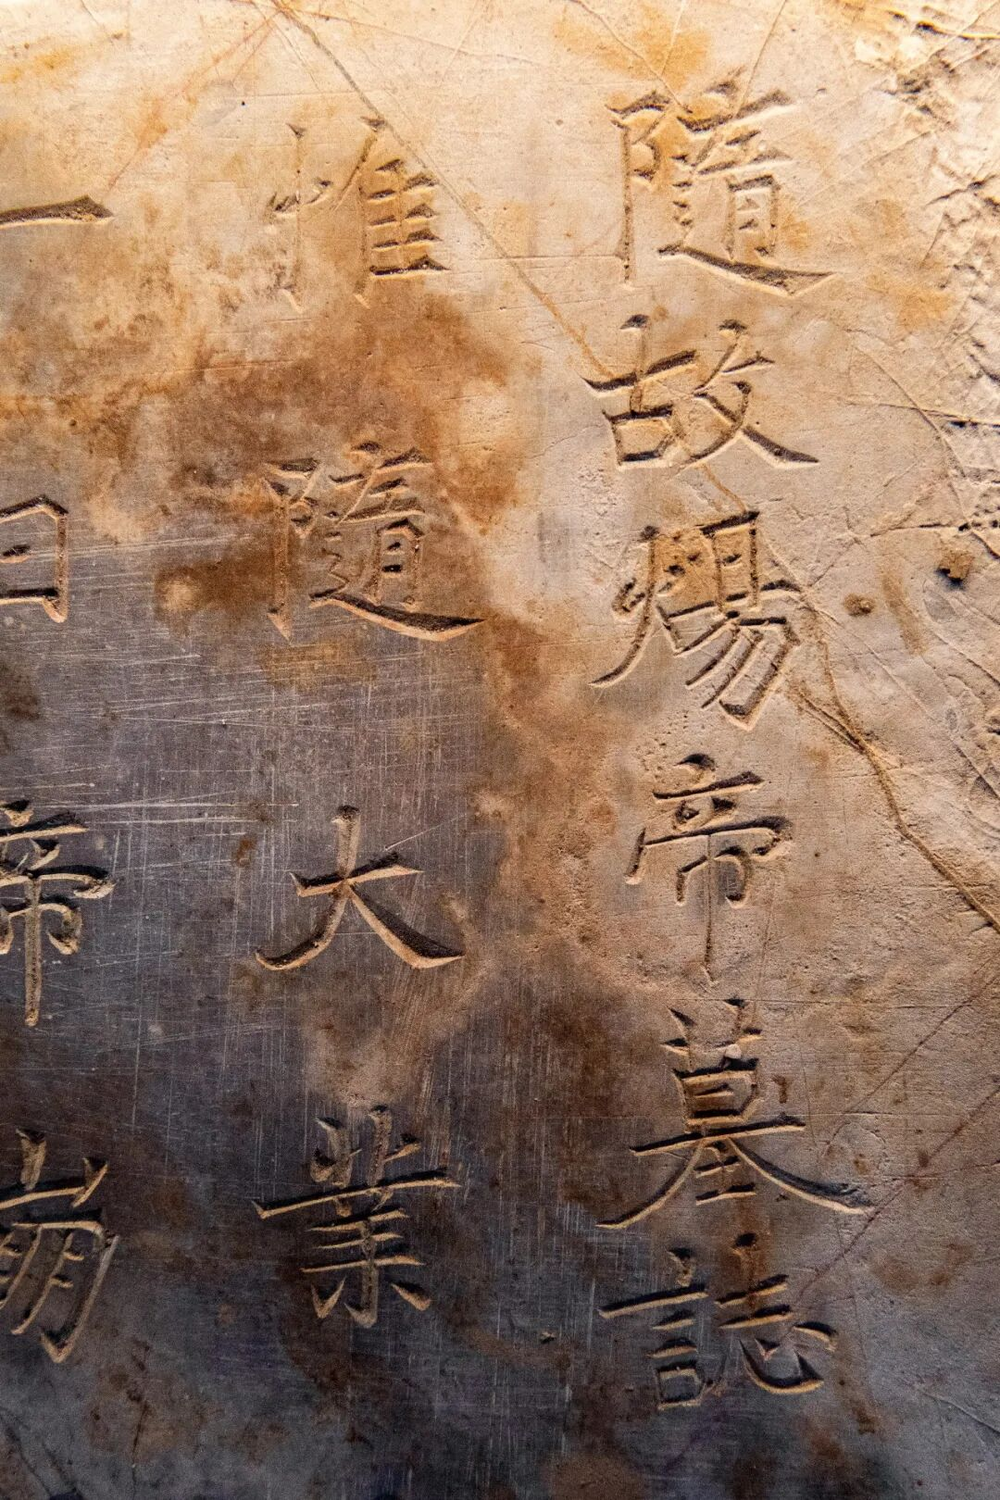 隨故煬帝墓誌
惟隨大業
一日帝崩